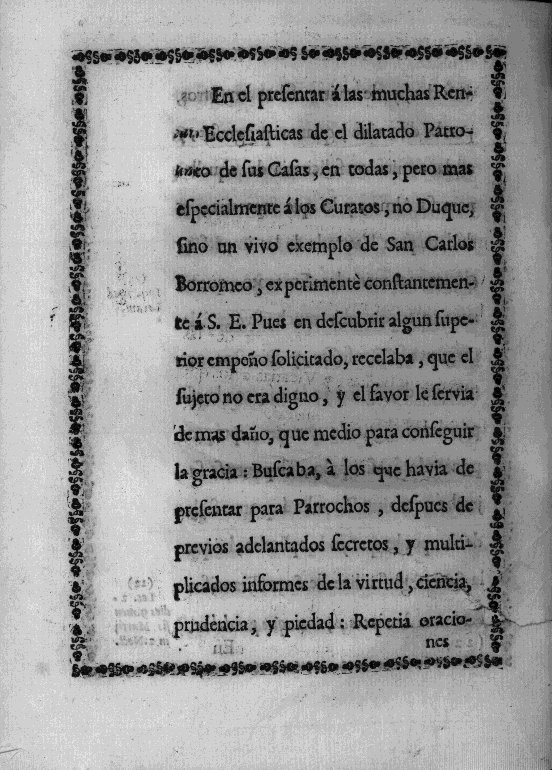 En el preſentar á las muchas Ren-
Eccleſiaſticas de el dilatado Patro-
de ſus Caſas, en todas, pero mas
eſpecialmente á los Curatos, no Duque,
ſino un vivo exemplo de San Carlos
Borromeo, experimentè conſtantemen-
te á S. E. Pues en deſcubrir algun ſupe-
rior empeño ſolicitado, recelaba, que el
ſujeto no era digno, y el favor le ſervia
de mas daño, que medio para conſeguir
la gracia: Buſcaba, à los que havia de
preſentar para Parrochos, deſpues de
previos adelantados ſecretos, y multi-
plicados informes de la virtud, ciencia,
prudencia, y piedad: Repetia oracio-
nes